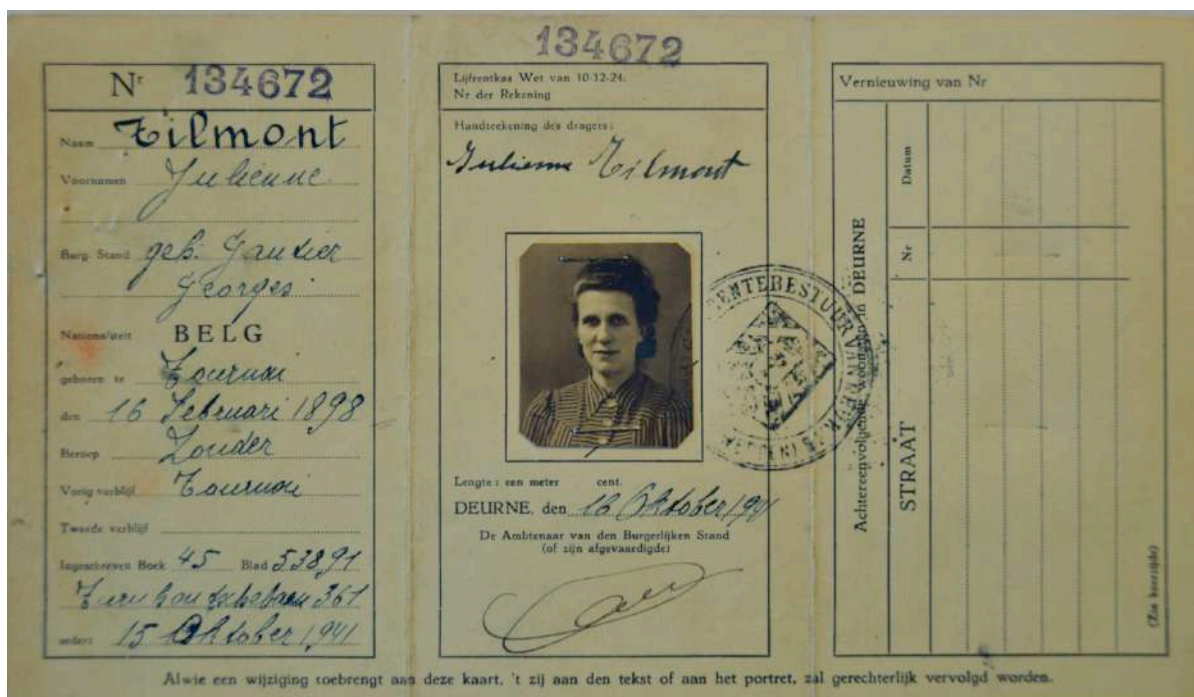 Nr 134672
Naam Tilmont
Voornamen Julienne
Burg. Stand geh. Gautier
Georges
Nationaliteit BELG
geboren te Tournai
den 16 Februari 1898
Beroep Zonder
Vorig verblijf Tournai
Tweede verblijf
Ingeschreven Boek 45 Blad 53891
Turnhoutschebaan 361
sedert 15 Oktober 1941
134672
Lijfrentkas Wet van 10-12-24.
Nr der Rekening
Handteekening des dragers:
Julienne Tilmont
GEMEENTEBESTUUR VAN DEURNE
Lengte: een meter cent.
DEURNE, den 16 Oktober 1941
De Ambtenaar van den Burgerlijken Stand
(of zijn afgevaardigde)
Vernieuwing van Nr
Achtereenvolgende woonsten in DEURNE
Datum
Nr
STRAAT
(Zie keerzijde)
Alwie een wijziging toebrengt aan deze kaart, 't zij aan den tekst of aan het portret, zal gerechterlijk vervolgd worden.